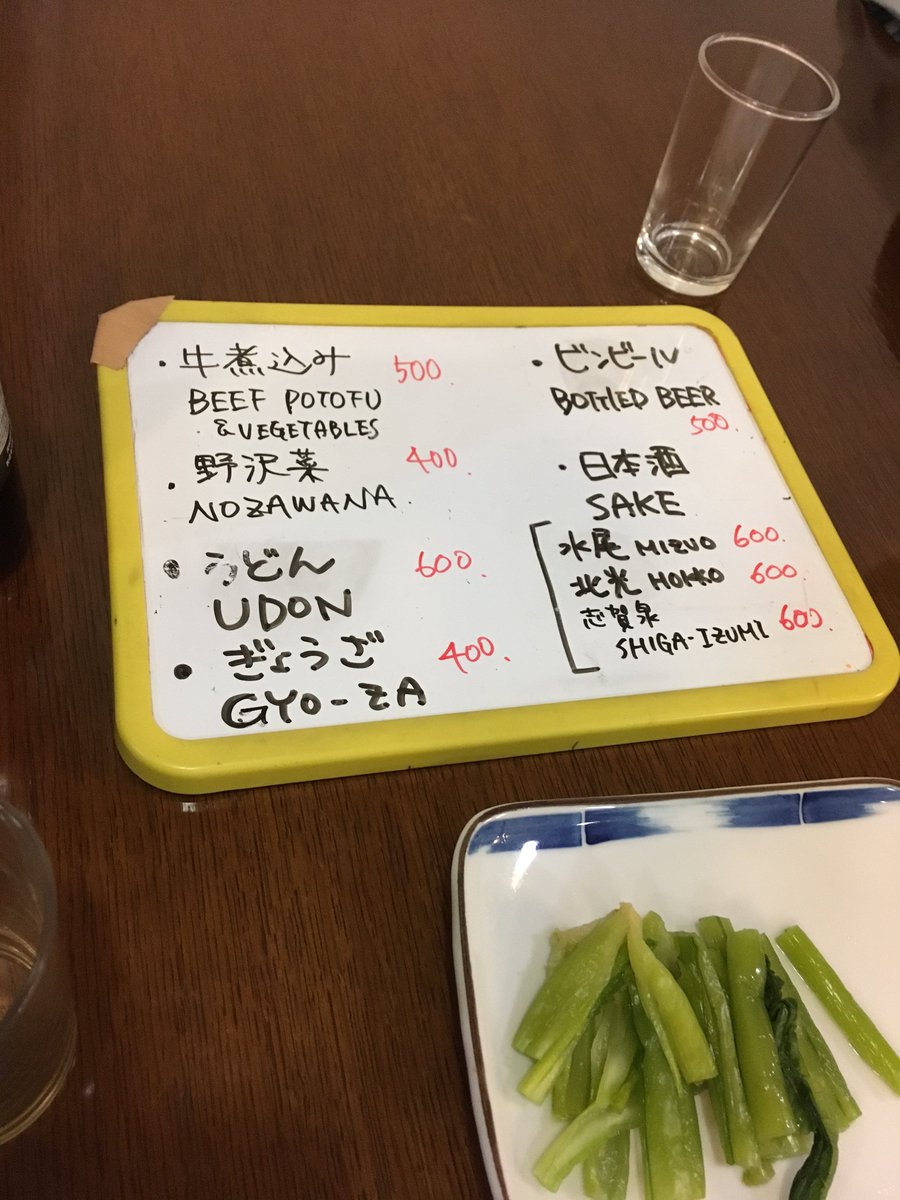 ・牛煮込み 500
BEEF POTOFU
& VEGETABLES
・野沢菜 400.
NOZAWANA.
・うどん 600.
UDON
・ぎょうざ 400.
GYO-ZA
・ビンビール
BOTTLED BEER
500.
・日本酒
SAKE
水尾 MIZUO 600.
北光 HOKKO 600.
志賀泉
SHIGA-IZUMI 600.